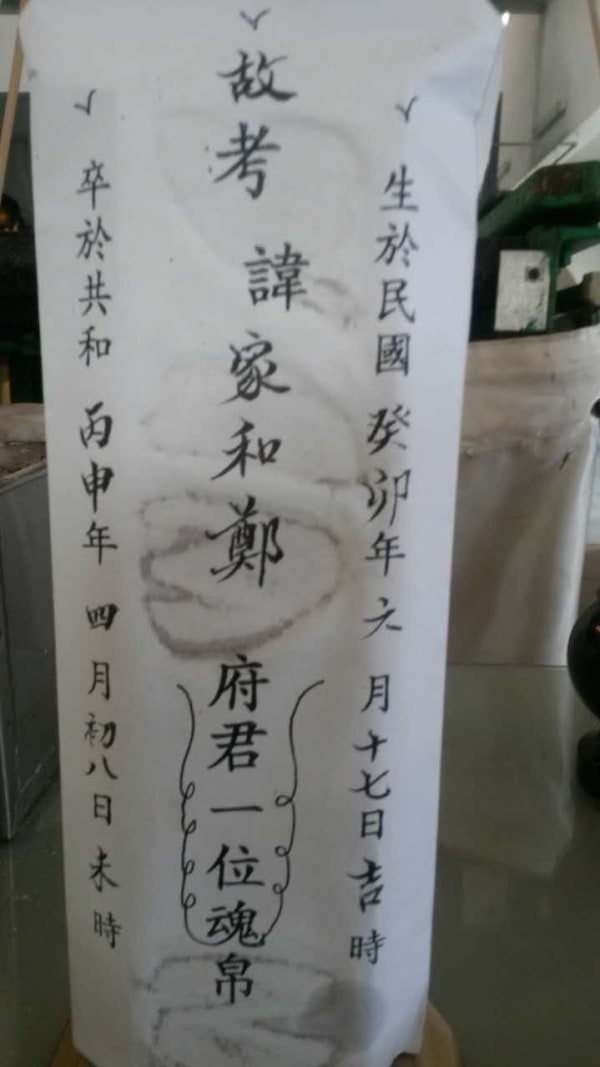 生於民國癸卯年元月十七日吉時
故考諱家和鄭府君一位魂帛
卒於共和丙申年四月初八日未時